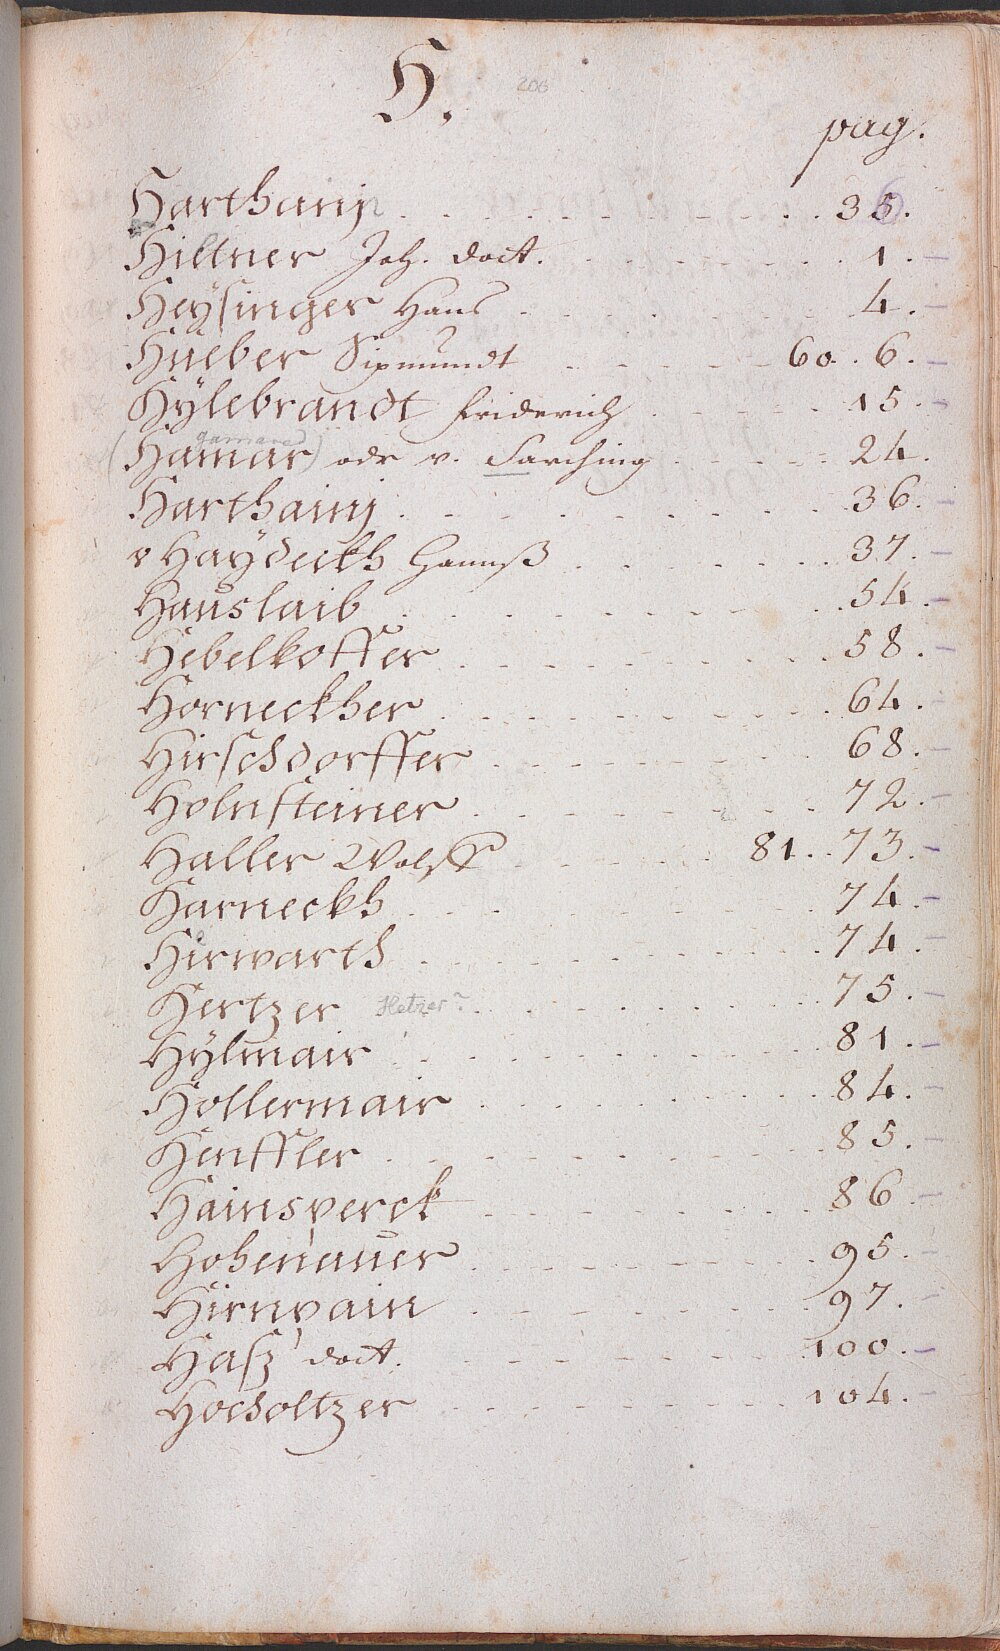 H. 206
pag.
Harthainj . . . . . . . . . . 35.
Hiltner Joh. doct. . . . . . . . . 1.
Heysinger Hans . . . . . . . 4.
Hueber Sigmundt . . . . . 60. 6.
Hylebrandt Friderich . . . . . . 15.
gamared
(Hamar) odr v. Sarching . . . . . 24.
Harthainj . . . . . . . . . . 36.
v Haydeckh Hannß . . . . . . 37.
Hauslaib . . . . . . . . . . 54.
Hebelkoffer . . . . . . . . . 58.
Horneckher . . . . . . . . . 64.
Hirschdorffer . . . . . . . . 68.
Holnsteiner . . . . . . . . . 72.
Haller Wolff . . . . . 81. . 73.
Harneckh . . . . . . . . . . 74.
Hirwarth . . . . . . . . . . 74.
Hertzer Hetzer? . . . . . . . . 75.
Hylmair . . . . . . . . . . 81.
Hollermair . . . . . . . . . 84.
Henffler . . . . . . . . . . 85.
Hainsperck . . . . . . . . . 86
Hohenauer . . . . . . . . . 95.
Hirnpain . . . . . . . . . . 97.
Hasz doct. . . . . . . . . . 100.
Hocholtzer . . . . . . . . . 104.